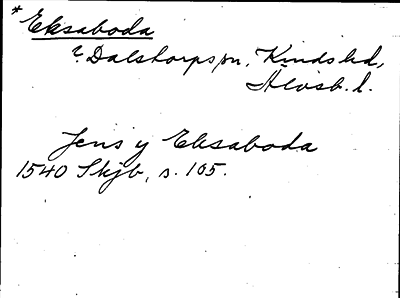 * Eksaboda
? Dalstorps sn, Kinds hd,
Älvsb. l.
Jens y Eksaboda
1540 Skjb, s. 105.